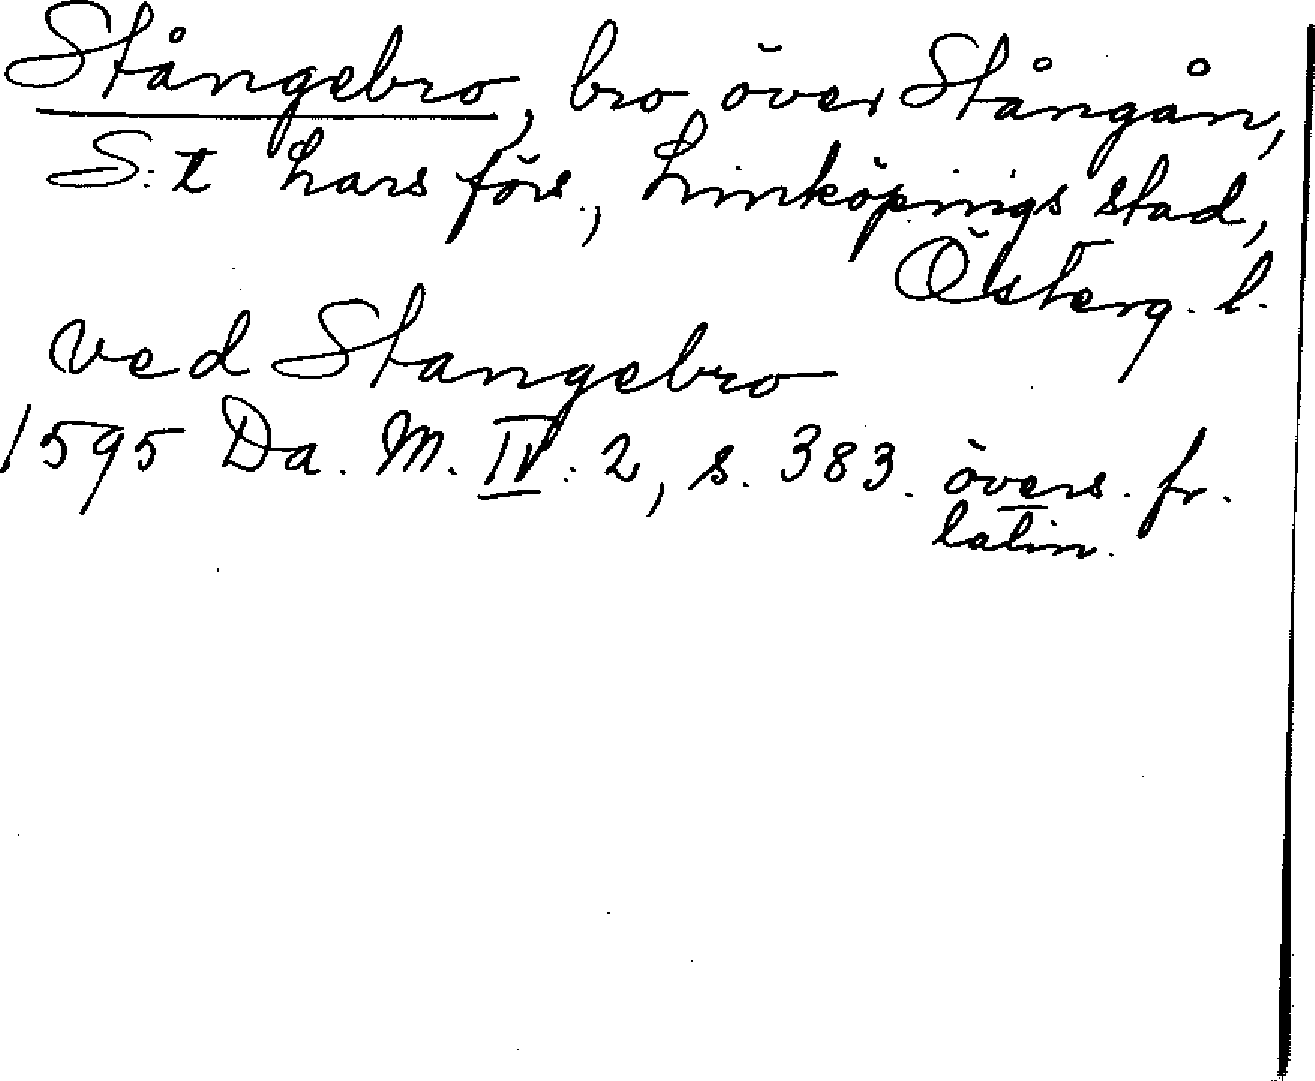 Stångebro, bro över Stångån,
S:t Lars förs., Linköpings stad,
Österg. l.
ved Stangebro
1595 Da. M. IV: 2, s. 383. övers. fr.
latin.